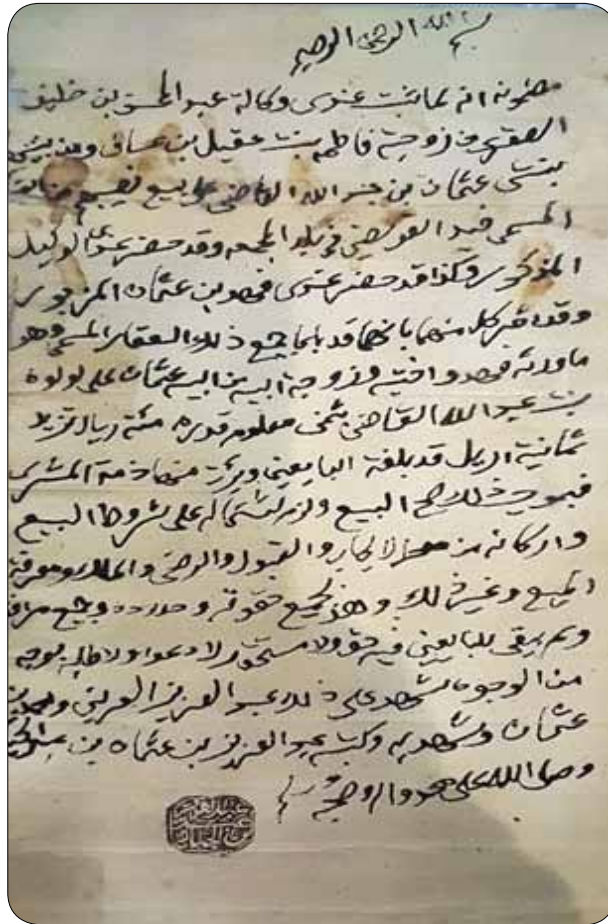 بسم الله الرحمن الرحيم
مضمونه انه لما ثبت عندي وكالة عبد المحسن بن خليف
العقيـ زوجته فاطمه بنت عقيل بن عساف
بنتي عثمان بن عبد الله القاضي على بيع نصيبهم من
المسمى فيد العوهلي في بلد المجمعه وقد حضر عندي الوكيل
المذكور وكذا قد حضر عندي محمد بن عثمان المزبور
وقد اقر كل منهما بانهما قد باعا جميع ذلك العقار المسمى وهو
ما ورثه محمد واختيه وزوجة ابيه من ابيه عثمان على لولوه
بنت عبد الله القاضي بثمن معلوم قدره مئة ريال تزيد
ثمانية اريل قد بلغة البايعين وبرئت منها ذمة المشتري
فبموجب ذلك صح البيع ولزم لاشتماله على شروط البيع
واركانه من الايجاب والقبول والرضى والملك ومعرفة
المبيع وغير ذلك وهذا بجميع حقوقه وحدوده وجميع
ولم يبقى للبايعين فيه حق ولا مستحق ولا دعوا ولا طلبه بوجه
من الوجوه شهد على ذلك عبد العزيز العريني ومحمد بن
عثمان وشهد به وكتبه عبد العزيز بن عثمان بن
وصلى الله على محمد واله وصحبه وسلم